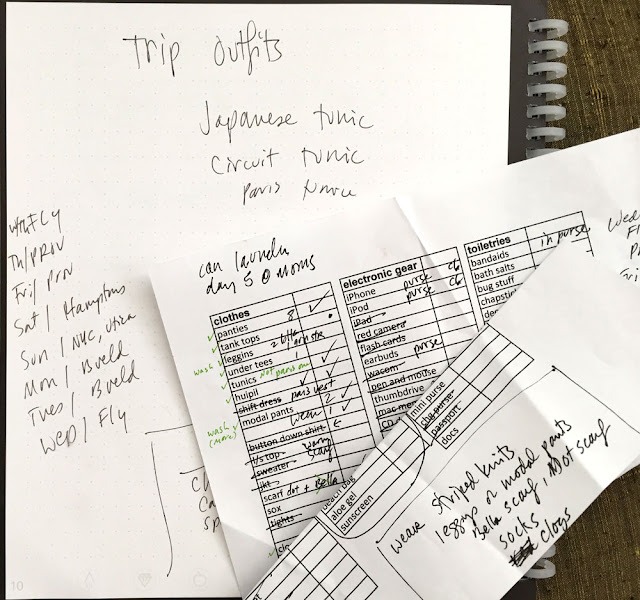 Trip Outfits
Japanese tunic
Circuit tunic
Paris
FLY
Th/PROV
Fri/ Prov
Sat / Hamptons
Sun / NYC, Utica
Mon / Bveld
Tues / Bveld
WED / FLY
10
can launder
day 5 @ Moms
clothes
panties 8
tank tops
wash leggins 2
under tees 1
tunics Not Paris
huipil
shift dress
modal pants 2
wash (more)
button down shirt
l/s top
sweater scarf
jkt
scarf dot + Bella
sox
tights
electronic gear
iPhone purse
iPod purse
iPad
red camera
flash cards
earbuds purse
wacom
pen and mouse
thumbdrive
toiletries
bandaids in purse
bath salts
bug stuff
chapstick
Wed
mini purse
cba purse
passport
docs
aloe gel
sunscreen
wear striped knits
leggings or modal pants
Bella scarf, Not scarf
socks
clogs